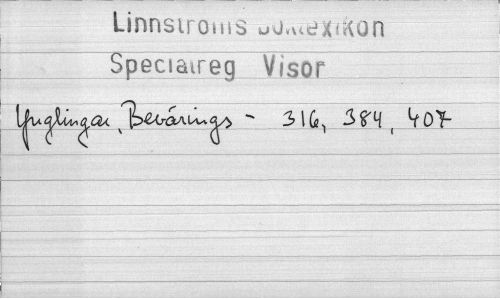 Linnströms Boklexikon
Specialreg Visor
Ynglingar, Bevärings - 316, 384, 407